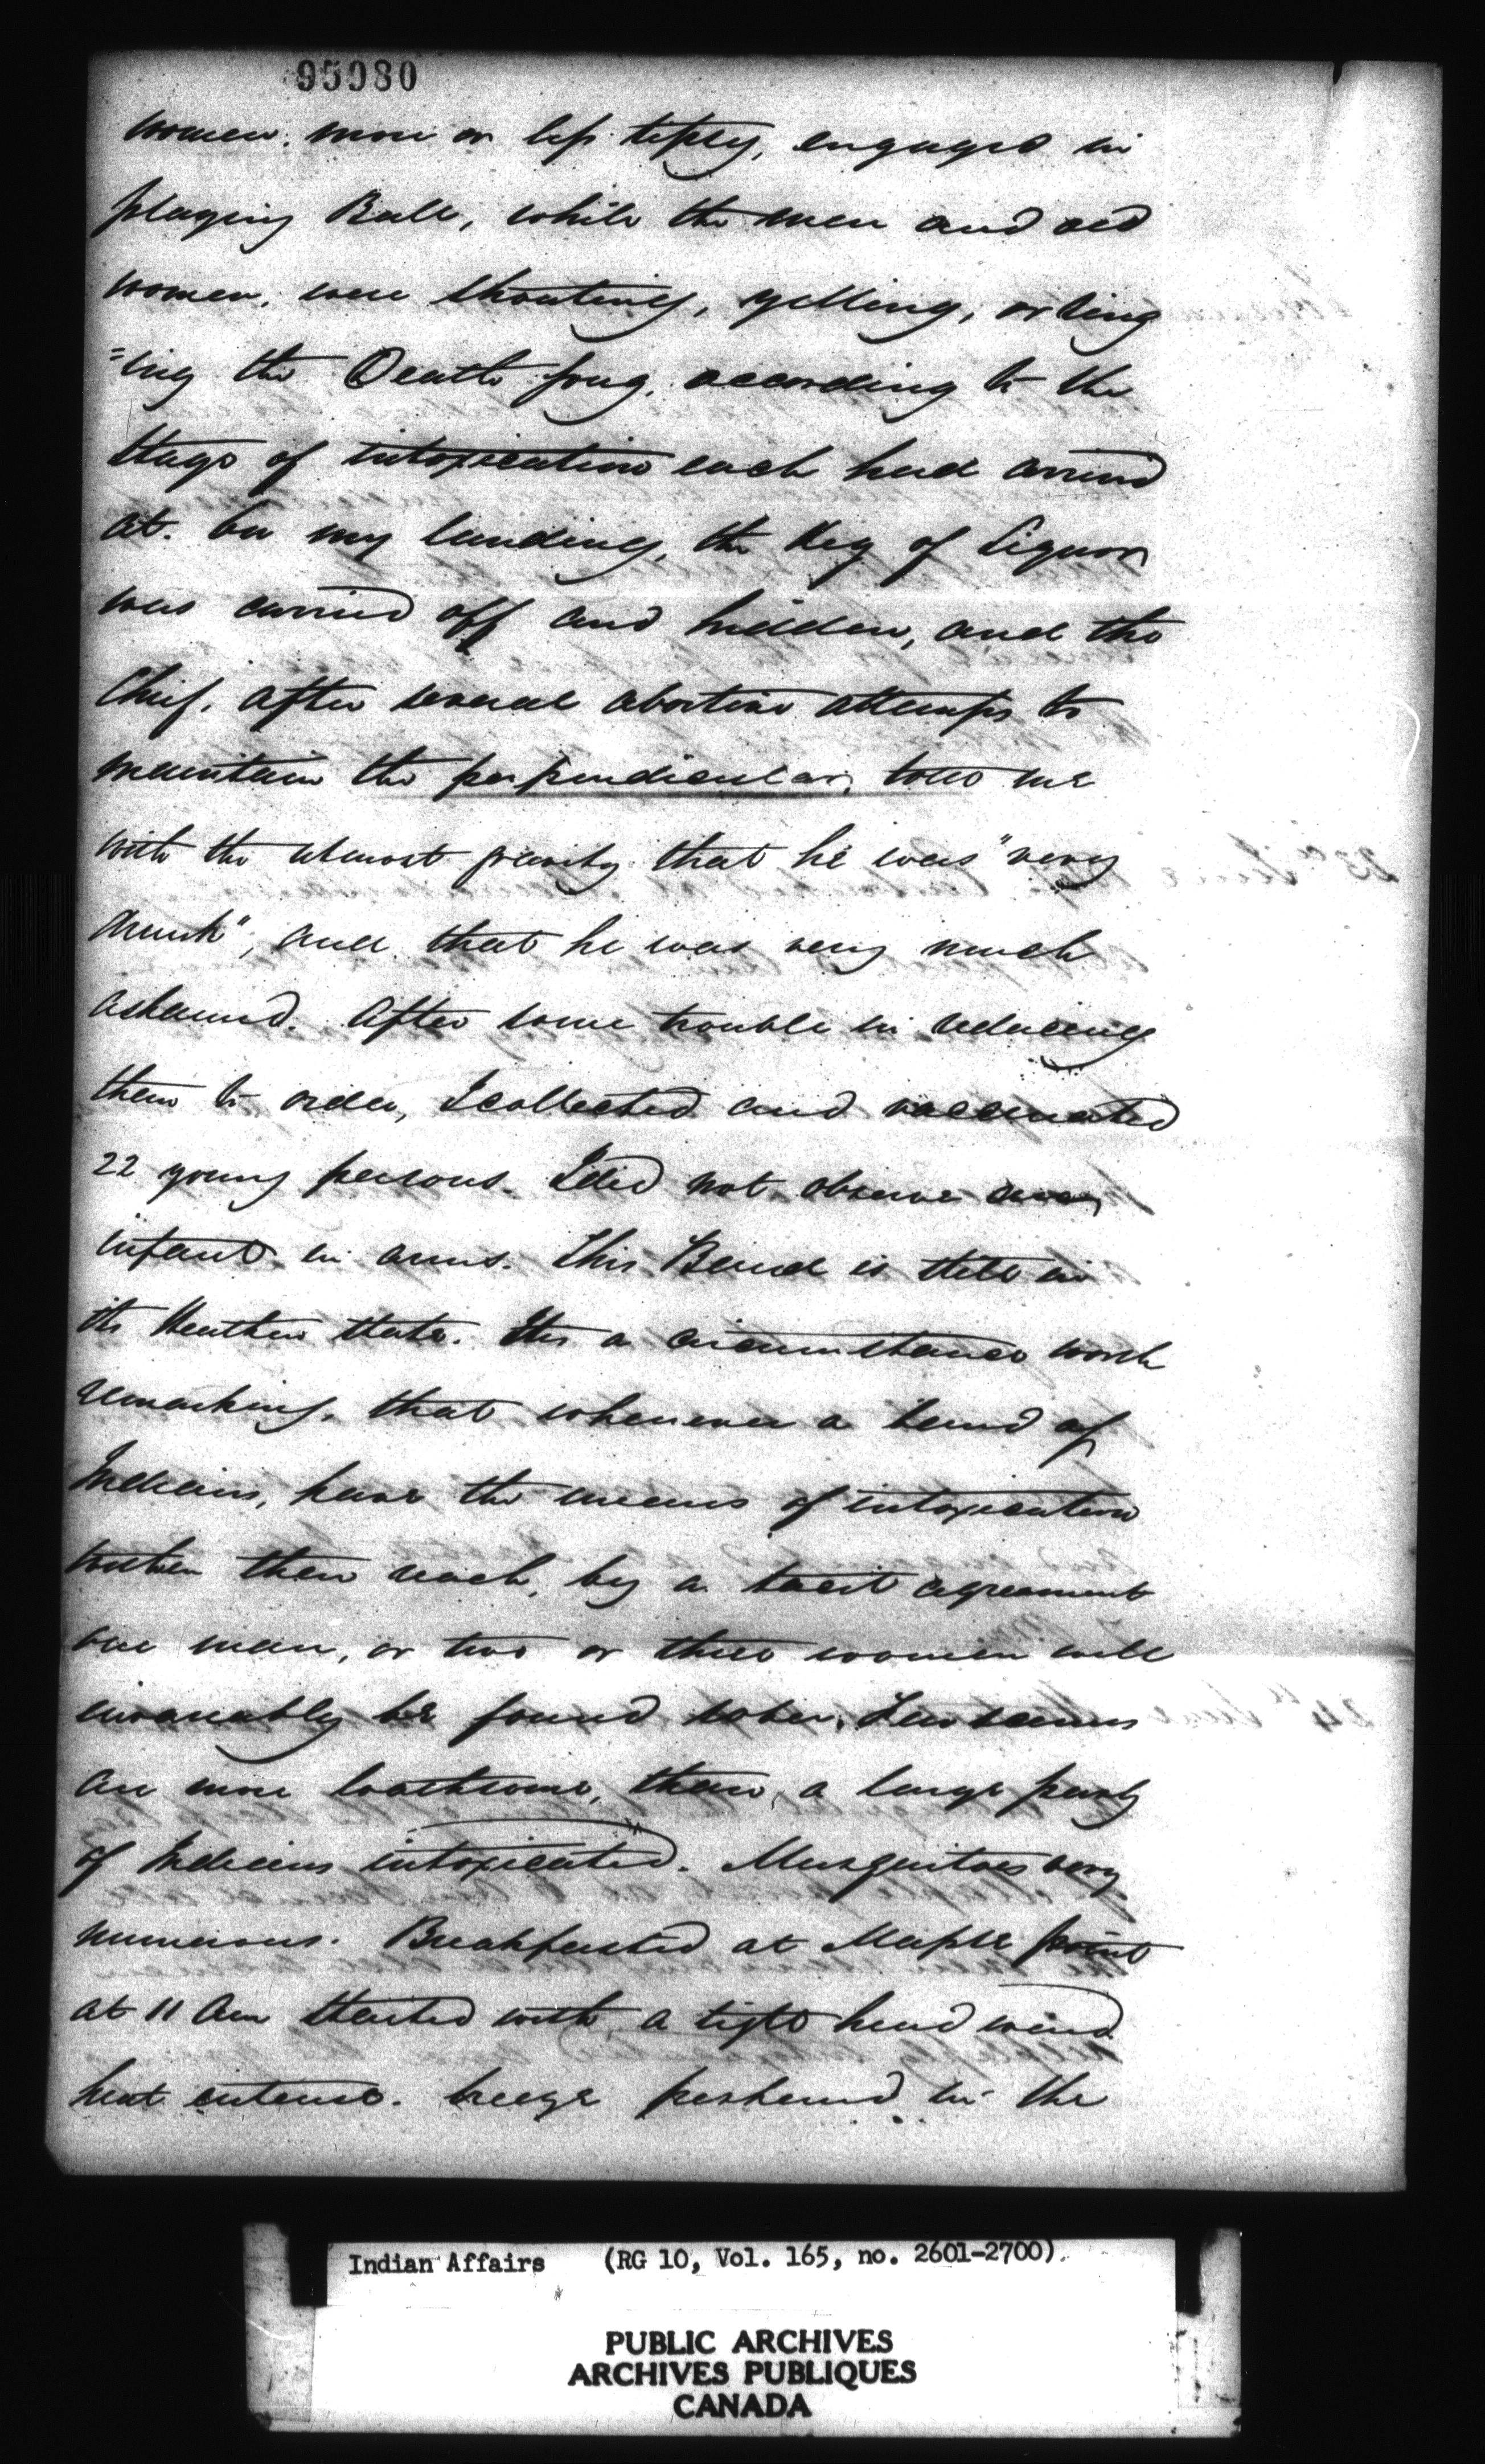 95980
women. more or less tipsy, engaged in
playing Ball, while the men and old
women, were shouting, yelling, or sing
=ing the Death song, according to the
stage of intoxication each had arrived
at. On my landing, the Keg of Liquor
was carried off and hidden, and the
Chief, after several abortive attempts to
maintain the perpendicular, told me
with the utmost gravity that he was "very
drunk", and that he was very much
ashamed. After some trouble in reducing
them to order, I collected and vaccinated
22 young persons. I did not observe any
infant in arms. This Band is still in
its Heathen state. Its a circumstance worth
remarking, that whenever a band of
Indians, have the means of intoxication
within their reach, by a tacit agreement
one man, or two or three women will
invariably be found sober. Few scenes
are more loathsome, than a large party
of Indians intoxicated. Musquitoes very
numerous. Breakfasted at Maple Point
at 11 Am Started with a light head wind
heat intense. breeze freshened in the
Indian Affairs (RG 10, Vol. 165, no. 2601-2700)
PUBLIC ARCHIVES
ARCHIVES PUBLIQUES
CANADA